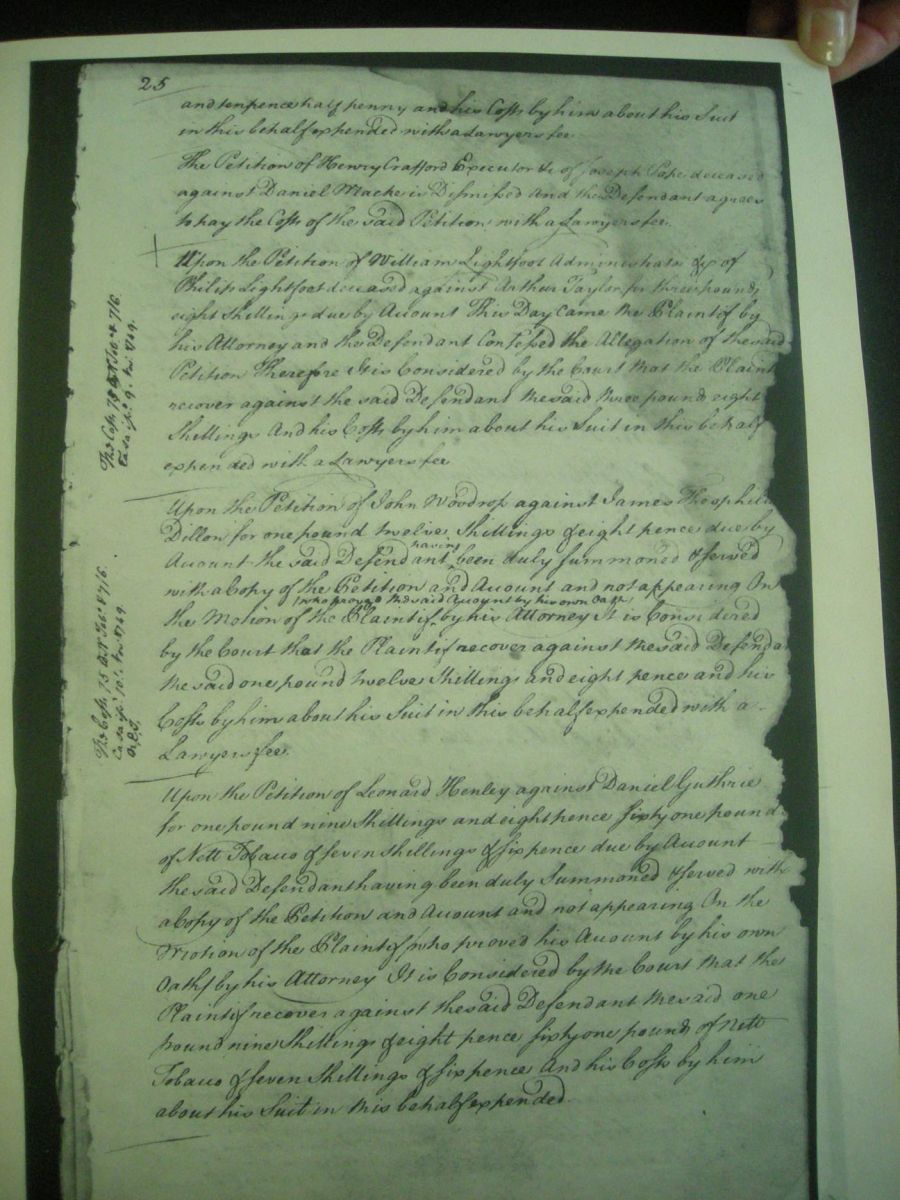 25
and tenpence half penny and his Costs by him about his Suit
in this behalf expended with a Lawyers fee
The Petition of Henry Crafford Executor &c of Joseph Pope deceased
against Daniel Macke is Dismissed And the Defendant agrees
to pay the Costs of the said Petition with a Lawyers fee
Upon the Petition of William Lightfoot Administrator &c of
Philip Lightfoot deceased against Arthur Taylor for three pounds
eight Shillings due by Account This Day Came the Plaintif by
his Attorney and the Defendant Confessed the Allegation of the said
Petition Therefore It is Considered by the Court that the Plaint
recover against the said Defendant the said three pound eight
Shillings And his Costs by him about his Suit in this behalf
expended with a Lawyers fee
Upon the Petition of John Woodrop against James Theophilu
Dillon for one pound twelve Shillings & eight pence due by
Account the said Defendant having been duly Summoned & served
with a Copy of the Petition and Account and not appearing On
who proved the said Account by his own Oath
the Motion of the Plaintif by his Attorney It is Considered
by the Court that the Plaintif recover against the said Defenda
the said one pound twelve Shillings and eight pence and his
Costs by him about his Suit in this behalf expended with a
Lawyers fee
Upon the Petition of Leonard Henley against Daniel Guthrie
for one pound nine Shillings and eight pence sixty one pound
of Nett Tobacco & seven shillings & sixpence due by Account
the said Defendant having been duly Summoned & served with
a Copy of the Petition and Account and not appearing On the
Motion of the Plaintif who proved his Account by his own
Oath by his Attorney It is Considered by the Court that the
Plaintif recover against the said Defendant the said one
pound nine Shillings & eight pence sixty one pound of Nett
Tobacco & seven Shillings & sixpence And his Costs by him
about his Suit in this behalf expended